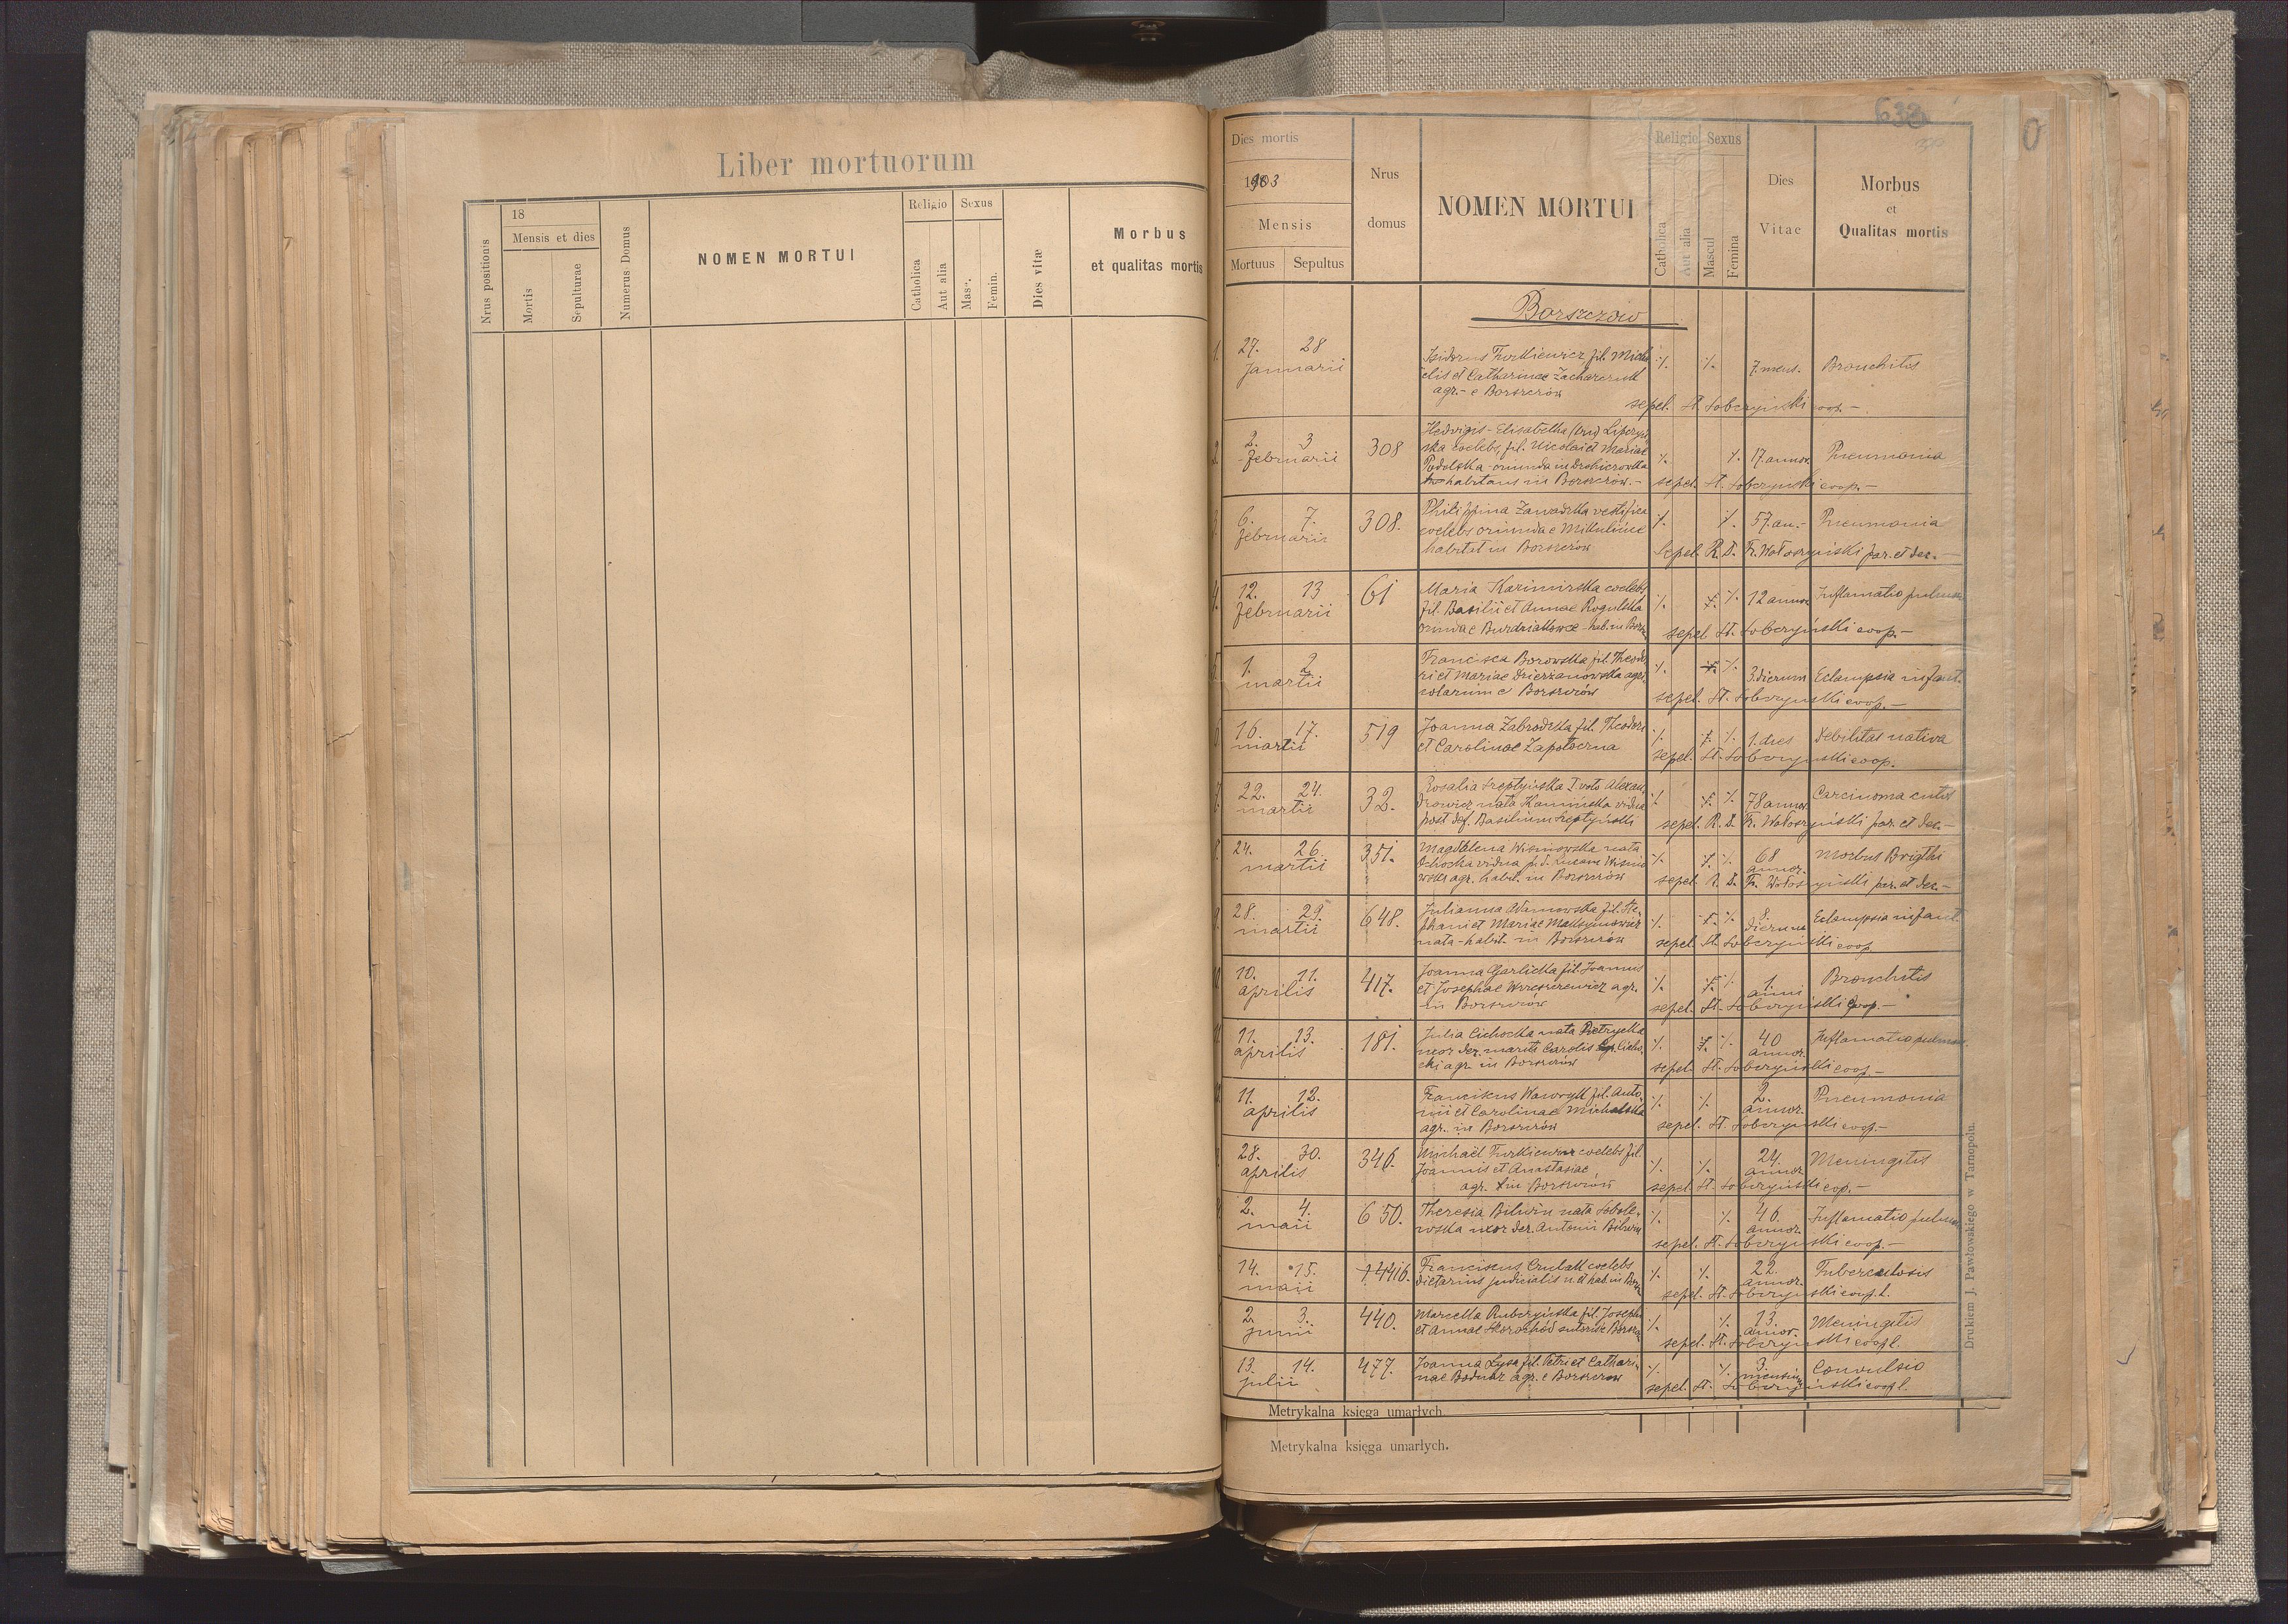 Liber mortuorum
Nrus positionis
18
Mensis et dies
Mortis
Sepulturae
Numerus Domus
NOMEN MORTUI
Religio
Sexus
Catholica
Aut alia
Masc.
Femin.
Dies vitæ
Morbus
et qualitas mortis
633
0
Dies mortis
1903
Mensis
Mortuus
Sepultus
Nrus
domus
NOMEN MORTUI
Religio
Sexus
Catholica
Aut alia
Mascul
Femina
Dies
Vitae
Morbus
et
Qualitas mortis
Borszczów
1. 27. 28
Januarii
Isidorus Turkiewicz fil. Micha
elis et Catharinae Zacharczuk
agr. - e Borszczów
7. mens. Bronchitis
sepel. St. Sobczyński coop. -
2. 2. 3
Februarii
308
Hedvigis - Elisabetha
coelebs, fil. Nicolai et Mariae
Podolska - oriunda
habitans in Borszczów. -
17. annor. Pneumonia
sepel. St. Sobczyński coop. -
3. 6. 7.
Februarii
308.
Philippina Zawadzka
coelebs oriunda e Mikulińce
habitat in Borszczów
57. an. - Pneumonia
Sepel. R. D. Fr. Wołoszyński par. et dec. -
4. 12. 13
Februarii
61
Maria Kazimirska coelebs
fil. Basilii et Annae Rogulska
oriunda e Burdziakowce - hab. in Borsz
12 annor. Inflamatio pulmon.
sepel. St. Sobczyński coop. -
5. 1. 2
martii
Francisca Borowska fil. Theodo
ri et Mariae Dzierzanowska agri
colarum e Borszczów
3. dierum Eclampsia infant.
sepel. St. Sobczyński coop. -
6. 16. 17.
martii
519
Joanna Zabrodzka fil. Theodori
et Carolinae Zapotoczna
1. dies Debilitas nativa
sepel. St. Sobczyński coop.
7. 22. 24.
martii
32.
Rosalia Szeptyńska I. voto Alexan
drowicz nata Kamińska vidua
post def. Basilium Szeptyński
78 annor. Carcinoma cutis
sepel. R. D. Fr. Wołoszyński par. et dec. -
8. 24. 26.
martii
351.
Magdalena Wiśniowska nata
Cichocka vidua p. d. Lucam Wiśnio
wski agr. habit. in Borszczów
68 annor. Morbus Brigthi
sepel. R. D. Fr. Wołoszyński par. et dec. -
9. 28. 29.
martii
648.
Julianna Adamowska fil. Ste
phani et Mariae Maksymowicz
nata - habit. in Borszczów
8. dierum Eclampsia infant.
sepel. St. Sobczyński coop
10. 10. 11.
aprilis
417.
Joanna Garlicka fil. Joannis
et Josephae agr.
in Borszczów
1. anni Bronchitis
sepel. St. Sobczyński coop. -
11. 11. 13.
aprilis
181.
Julia Cichocka nata Pietrycka
uxor der. mariti Carolis Cicho
cki agr. in Borszczów
40 annor. Inflamatio pulmon.
sepel. St. Sobczyński coop. -
11. 12.
aprilis
Franciscus Wawryk fil. Anto
nii et Carolinae Michalska
agr. in Borszczów
2. annor. Pneumonia
sepel. St. Sobczyński coop. -
28. 30.
aprilis
346.
Michaël Turkiewicz coelebs fil.
Joannis et Anastasiae
agr. in Borszczów
24. annor. Meningitis
sepel. St. Sobczyński coop. -
2. 4.
maii
650.
Theresia Bilwin nata Sobole
wska uxor der. Antonii Bilwin
46. annor. Inflamatio pulmon
sepel. St. Sobczyński coop. -
14. 15.
maii
446.
Franciscus coelebs
dietarius judicialis
22. annor. Tuberculosis
sepel. St. Sobczyński coop. l.
2. 3.
junii
440.
Marcella Rubczyńska fil. Josephi
et Annae
13. annor. Meningitis
sepel. St. Sobczyński coop. l.
13. 14.
julii
477.
Joanna Łysa fil. Petri et Cathari
nae Bodnar agr. e Borszczów
3. mensium Convulsio
sepel. St. Sobczyński coop. l.
Metrykalna księga umarłych.
Metrykalna księga umarłych.
Drukiem J. Pawłowskiego w Tarnopolu.